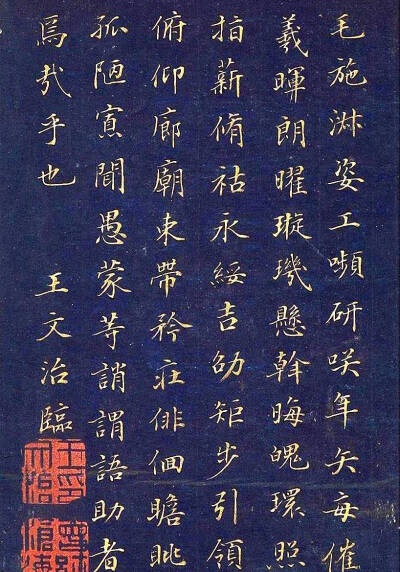 毛施淑姿工嚬研咲年矢每催
羲暉朗曜璇璣懸斡晦魄環照
指薪脩祜永綏吉劭矩步引領
俯仰廊廟束帶矜莊俳佪瞻眺
孤陋寡聞愚蒙等誚謂語助者
焉哉乎也 王文治臨